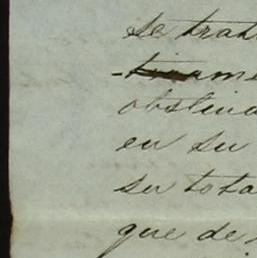 se trat
obstina
en su
su tota
que de